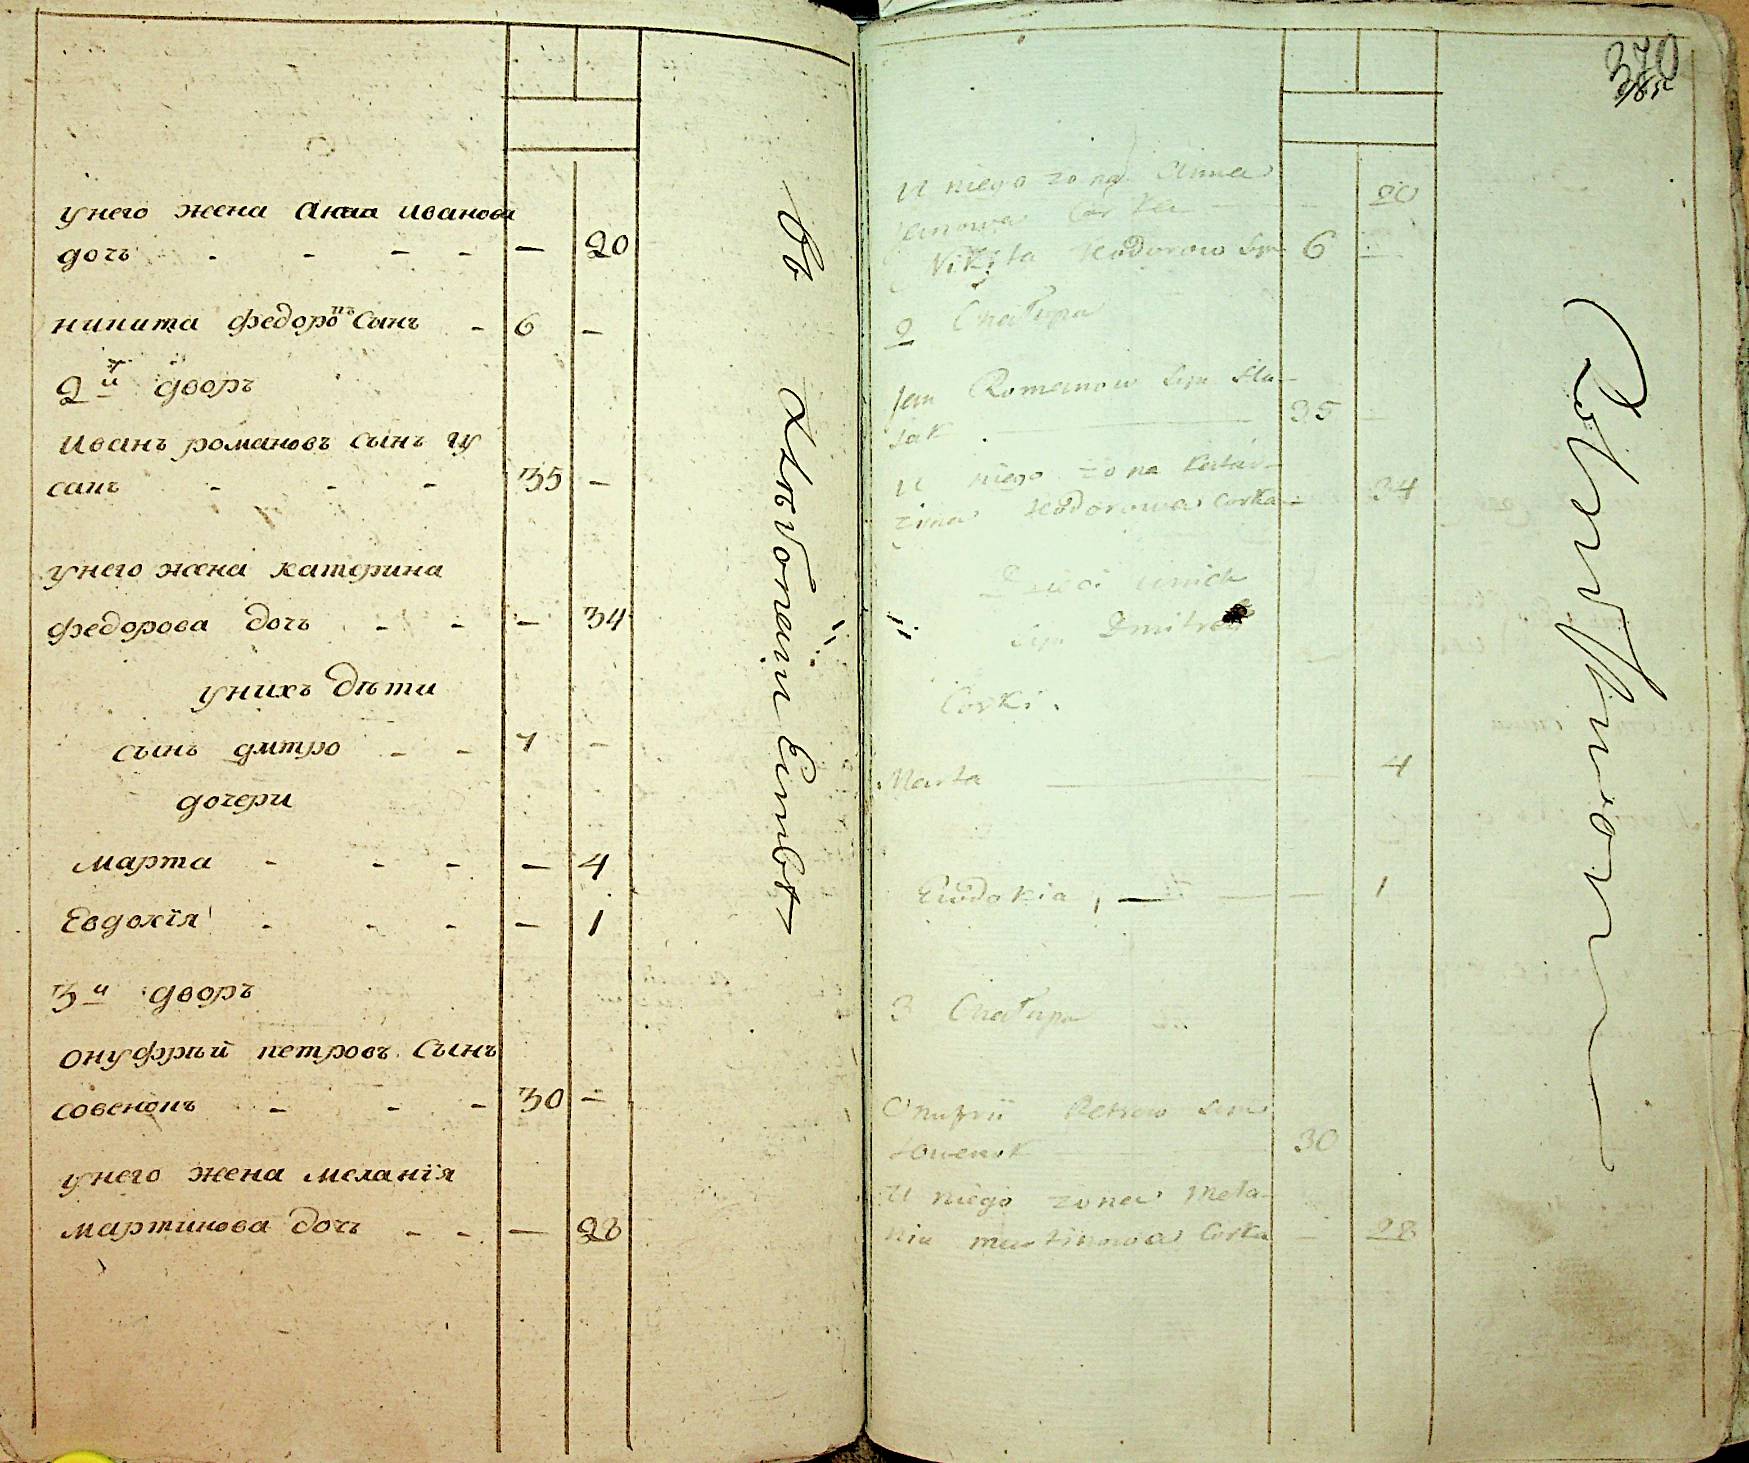 унего жена Анна иванова
дочъ - - - - — 20
никита федоровъ Сынъ - 6 —
2й дворъ
иванъ романовъ сынъ гу
сакъ - - - 35 —
унего жена катерина
федорова дочъ - - — 34
унихъ дѣти
сынъ дмтро - - 7 —
дочери
марта - - - — 4
Евдокїя - - - — 1
3й дворъ
онуфрѣй петровъ Сынъ
совенокъ - - - 30 —
унего жена меланїя
мартинова дочъ - - — 28
370
U niego zona Anna
Janowa Corka — 20
Nikita Teodorow Syn 6 —
2 Chałupa
Jan Romanow Syn Hu-
sak — 35 —
U niego zona Katar-
zina Teodorowa Corka — 34
Dzieci u nich
Syn Dmitro
Corki.
Marta — 4
Ewdokia, — 1
3 Chałupa
Onufrii Petrow Syn
Sowenok — 30
U niego zona Mela-
nia martinowa Corka — 28